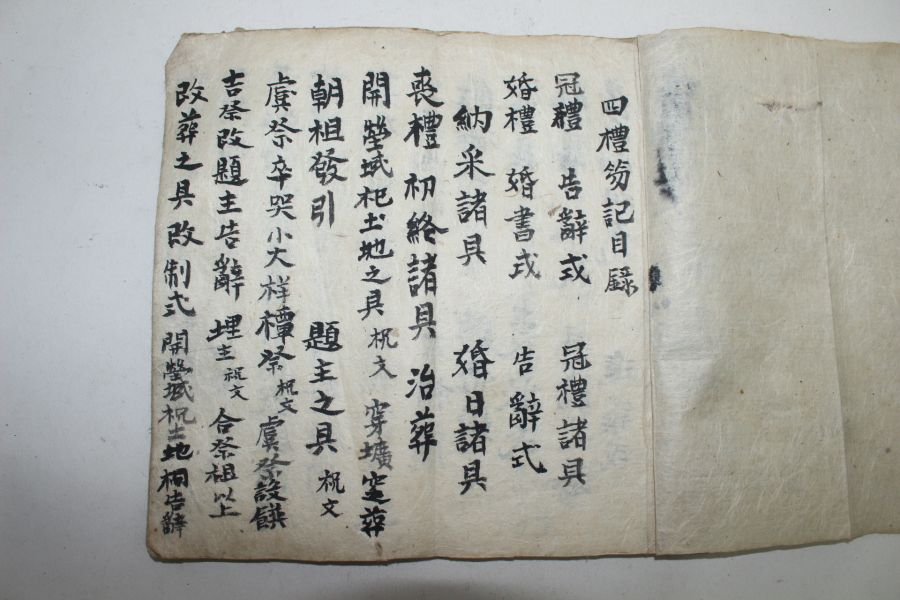 四禮笏記目録
冠禮 告辭式 冠禮諸具
婚禮 婚書式 告辭式
納采諸具 婚日諸具
喪禮 初終諸具 治葬
開塋域祀土地之具 祝文 穿壙窆葬
朝祖發引 題主之具 祝文
虞祭卒哭小大祥禫祭 祝文 虞祭設饌
吉祭改題主告辭 埋主 祝文 合祭祖以上
改葬之具 改制式 開塋域祝土地祠告辭